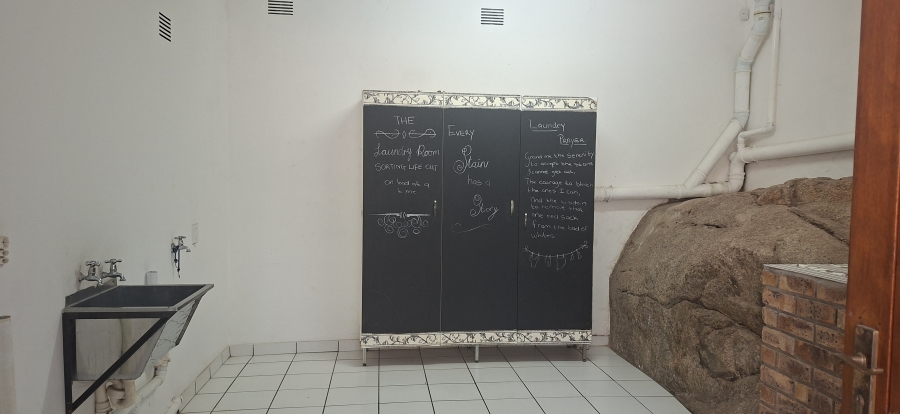 THE
Laundry Room
SORTING LIFE OUT
one load at a
time
EVERY
Stain
has a
Story
Laundry
Prayer
Grant me the serenity
to accept the stains
I cannot get out,
The courage to bleach
the ones I can,
And the wisdom
to remove that
one red sock
from the load of
whites